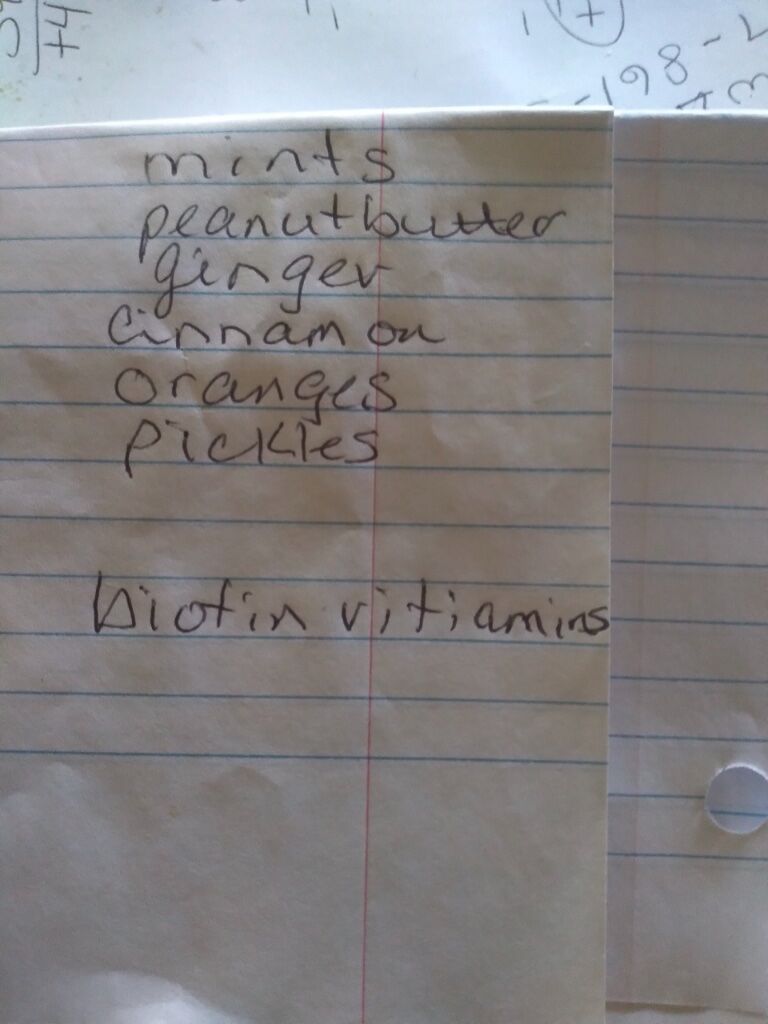 -198-
mints
peanutbutter
ginger
cinnamon
oranges
pickles
biotin vitiamins